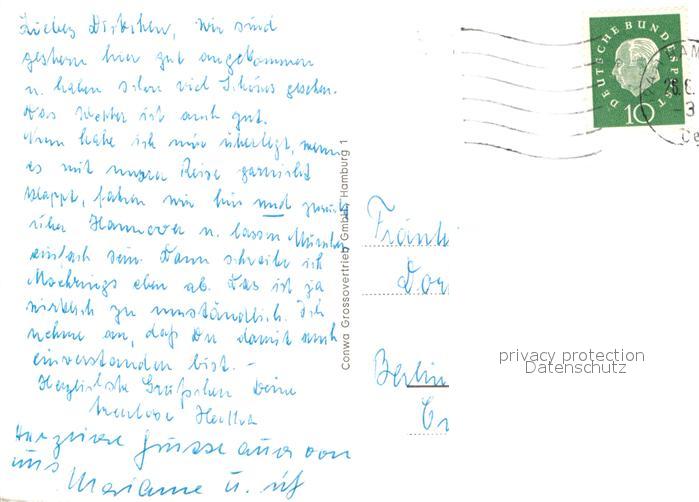 Liebes Dörtchen, wir sind
gestern hier gut angekommen
u. haben schon viel Schönes gesehen.
Das Wetter ist auch gut.
Nun habe ich mir überlegt, wenn
es mit unserer Reise garnicht
klappt, fahren wir hin und zurück
über Hannover u. lassen Münster
einfach sein. Dann schreibe ich
Moehrings eben ab. Das ist ja
wirklich zu umständlich. Ich
nehme an, daß Du damit auch
einverstanden bist. –
Herzliche Grüßchen Deine
Herzliche Grüsse auch von
uns Marianne u.
Conwa Grossovertrieb GmbH, Hamburg 1
DEUTSCHE BUNDESPOST
10
Fräul
Dor
Berlin
privacy protection
Datenschutz